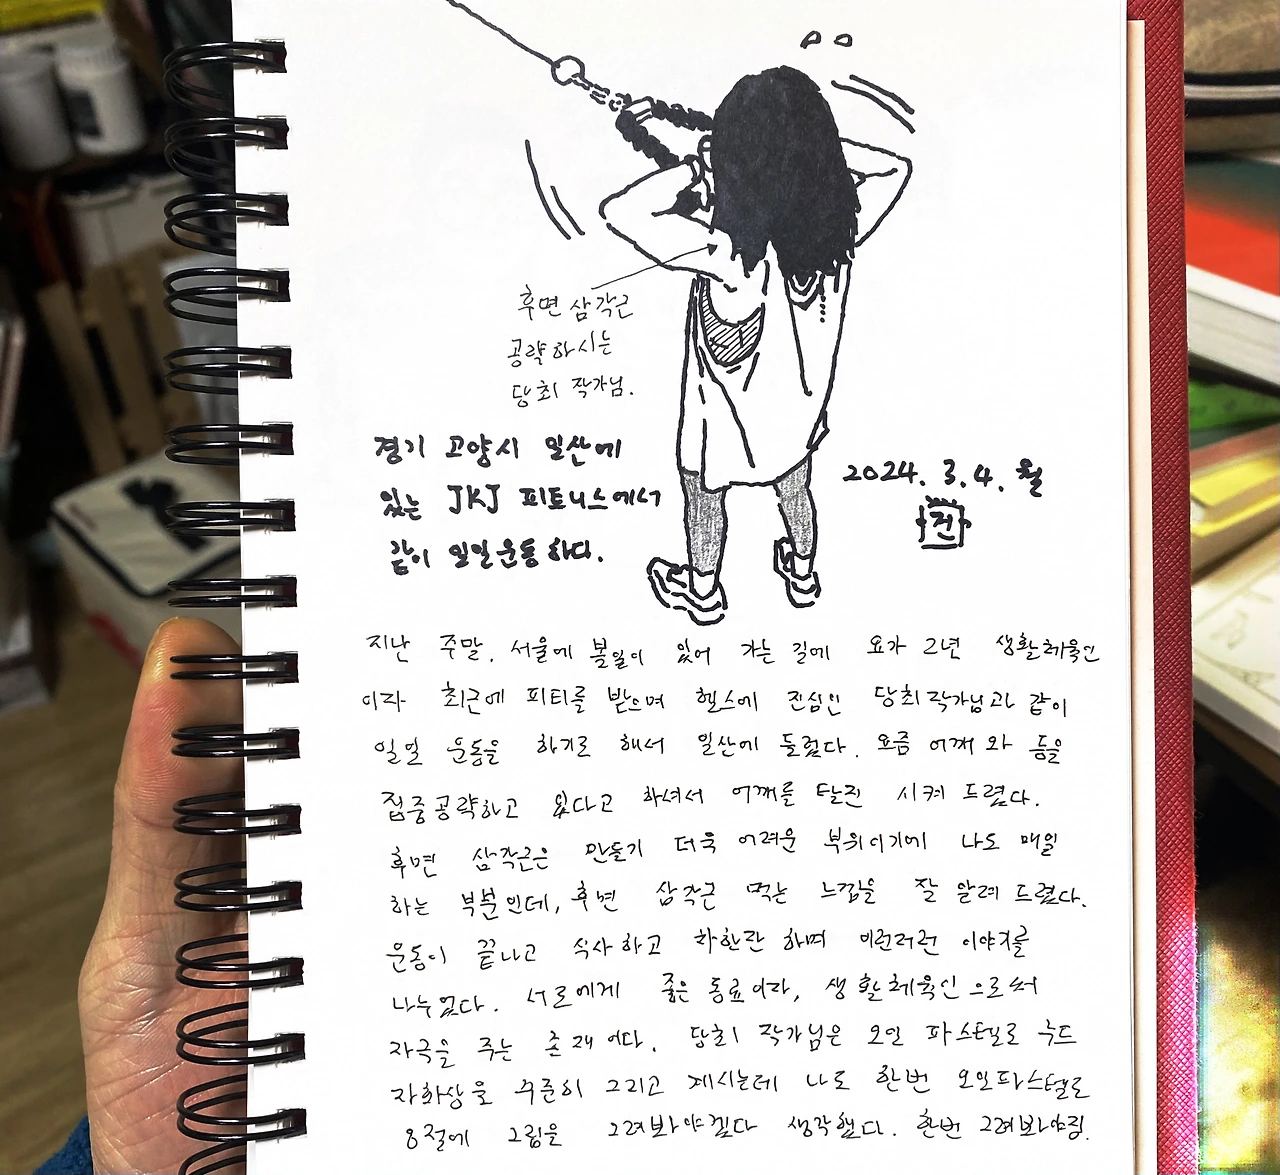 후면 삼각근
공략하시는
당최 작가님.
경기 고양시 일산에
있는 JKJ 피트니스에서
같이 일일운동하다.
2024. 3. 4. 월
전
지난 주말. 서울에 볼일이 있어 가는 길에 요가 2년 생활체육인
이자 최근에 피티를 받으며 헬스에 진심인 당최작가님과 같이
일일 운동을 하기로 해서 일산에 들렀다. 요즘 어깨와 등을
집중공략하고 있다고 하셔서 어깨를 탈진 시켜 드렸다.
후면 삼각근은 만들기 더욱 어려운 부위이기에 나도 매일
하는 부분인데, 후면 삼각근 먹는 느낌을 잘 알려 드렸다.
운동이 끝나고 식사하고 차한잔 하며 이런저런 이야기를
나누었다. 서로에게 좋은 동료이자, 생활체육인으로써
자극을 주는 존재이다. 당최 작가님은 오일 파스텔로 누드
자화상을 꾸준히 그리고 계시는데 나도 한번 오일파스텔로
8절에 그림을 그려봐야겠다 생각했다. 한번 그려봐야징.